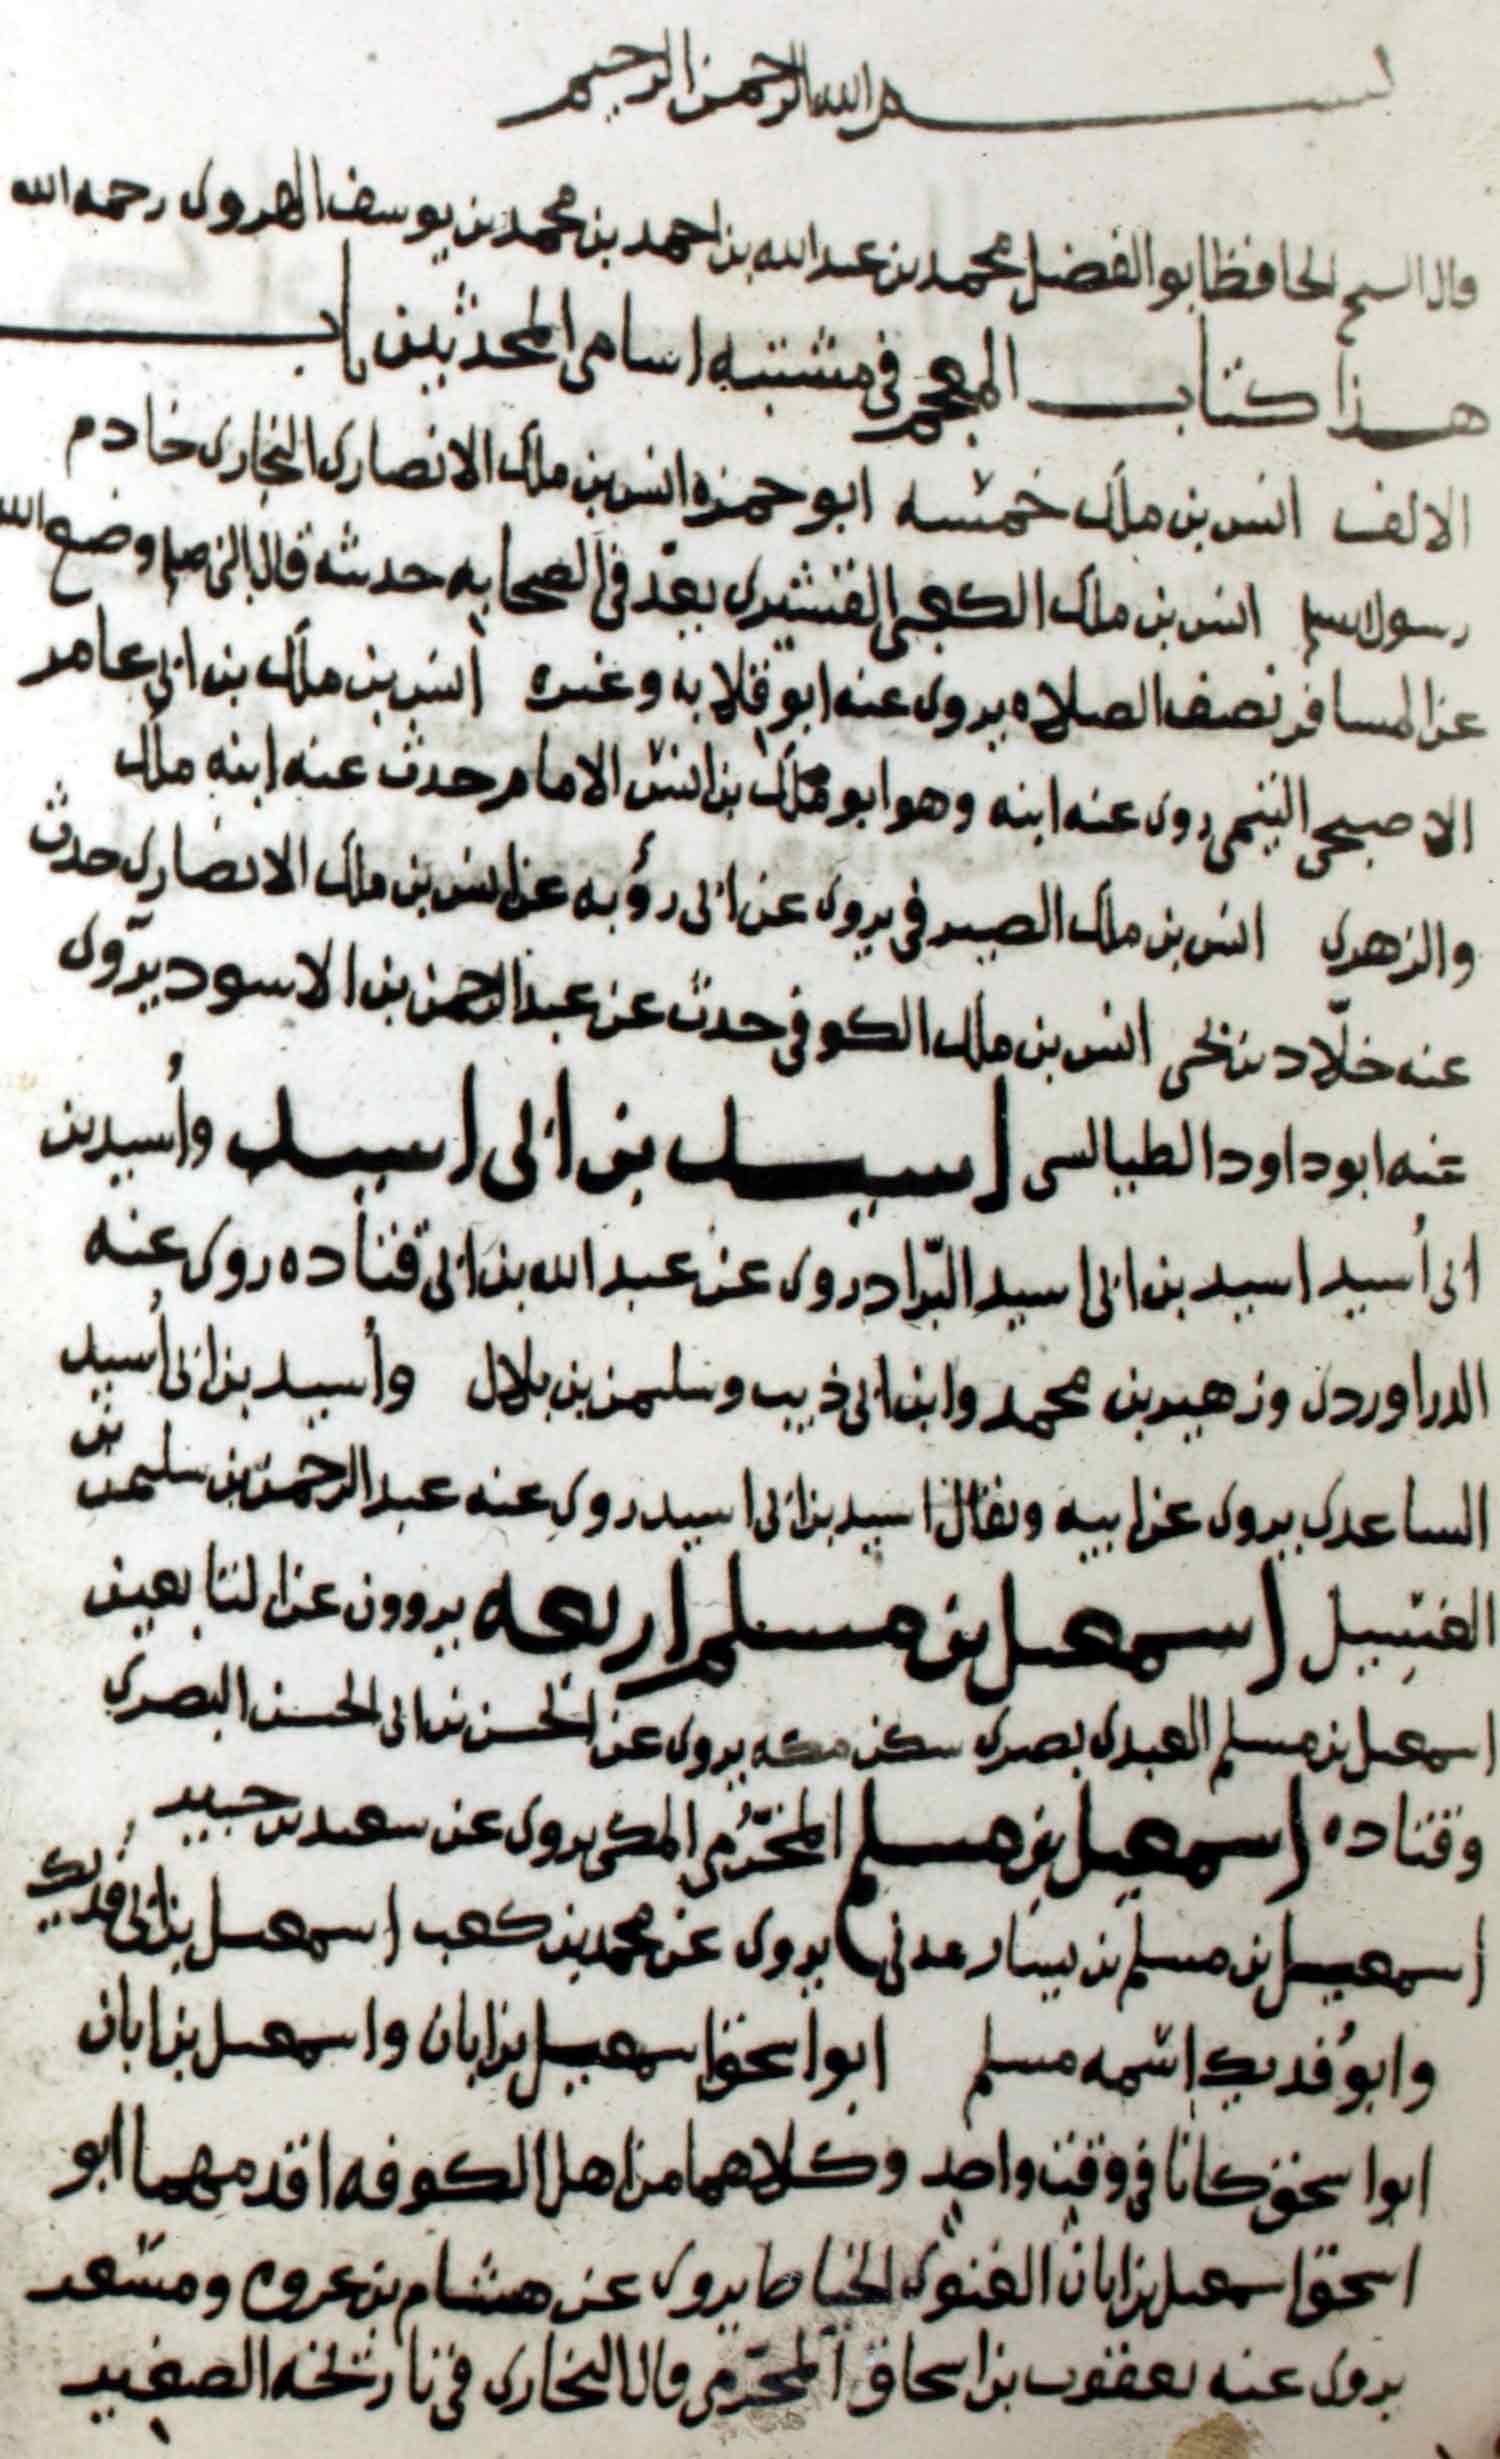 بسم الله الرحمن الرحيم
قال الشيخ الحافظ ابو الفضل محمد بن عبد الله بن احمد بن محمد بن يوسف الهروى رحمه الله
هذا كتاب المعجم فى مشتبه اسامى المحدثين باب
الالف انس بن ملك خمسه ابو حمزه انس بن ملك الانصارى النجارى خادم
رسول الله صلعم انس بن ملك الكعبى القشيرى يعدّ فى الصحابه حديثه قال النبى صلعم وضع الله
عن المسافر نصف الصلاه يروى عنه ابو قلابه وغيره انس بن ملك بن ابى عامر
الاصبحى التيمى روى عنه ابنه وهو ابو ملك بن انس الامام حدث عنه ابنه ملك
والزهرى انس بن ملك الصيرفى يروى عن ابى رؤبه عن انس بن ملك الانصارى حدث
عنه خلّاد بن يحيى انس بن ملك الكوفى حدث عن عبد الرحمن بن الاسود يروى
عنه ابو داود الطيالسى اسيد بن ابى اسيد وأُسيد بن
ابى أُسيد اسيد بن ابى اسيد البرّاد روى عن عبد الله بن ابى قتاده روى عنه
الدراوردى وزهير بن محمد وابن ابى ذيب وسليمن بن بلال وأسيد بن ابى أُسيد
الساعدى يروى عن ابيه ويقال اسيد بن ابى اسيد روى عنه عبد الرحمن بن سليمن بن
الغسيل اسمعيل بن مسلم اربعه يروون عن التابعين
اسمعيل بن مسلم العبدى بصرى سكن مكه يروى عن الحسن بن ابى الحسن البصرى
وقتاده اسمعيل بن مسلم المخزومى المكى يروى عن سعيد بن جبير
اسمعيل بن مسلم بن يسار مدنى يروى عن محمد بن كعب اسمعيل بن ابى فديك
وابو فُديك اسمه مسلم ابو اسحق اسمعيل بن ابان واسمعيل بن ابان
ابو اسحق كانا فى وقت واحد وكلاهما من اهل الكوفه اقدمهما ابو
اسحق اسمعيل بن ابان الغنوى الخياط يروى عن هشام بن عروه ومسعر
يروى عنه يعقوب بن اسحاق المخرمى قال البخارى فى تاريخه الصغير